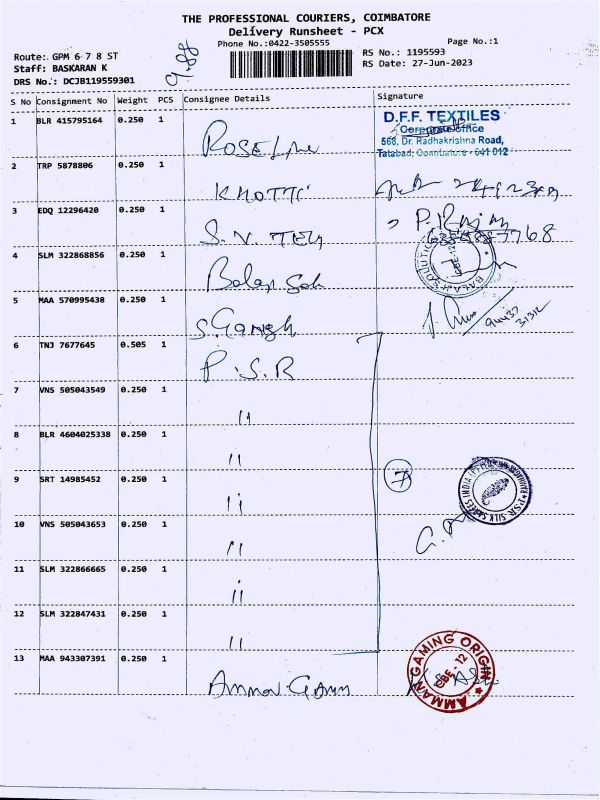 THE PROFESSIONAL COURIERS, COIMBATORE
Delivery Runsheet - PCX
Phone No.:0422-3505555
Page No.:1
Route: GPM 6 7 8 ST
988
RS No.: 1195593
Staff: BASKARAN K
RS Date: 27-Jun-2023
DRS No.: DCJB119559301
S No Consignment No Weight PCS Consignee Details Signature
1 BLR 415795164 0.250 1
D.F.F. TEXTILES
Corporate Office
568, Dr. Radhakrishna Road,
Tatabad, Coimbatore - 641 012
2 TRP 5878806 0.250 1
KHOTTI
3 EDQ 12296420 0.250 1
S.N. TEX
P. Rajan
4 SLM 322868856 0.250 1
Balaji Sol
5 MAA 570995438 0.250 1
S. Ganesh
6 TNJ 7677645 0.505 1
P.S.R
7 VNS 505043549 0.250 1
11
8 BLR 4604025338 0.250 1
11
9 SRT 14985452 0.250 1
11
7
PSR SILK SAREES INDIA
10 VNS 505043653 0.250 1
11
11 SLM 322866665 0.250 1
11
12 SLM 322847431 0.250 1
11
13 MAA 943307391 0.250 1
AMMAN GAMING ORIGIN
CBE - 12